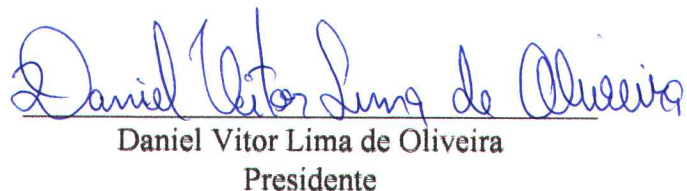 Daniel Vitor Lima de Oliveira
Daniel Vitor Lima de Oliveira
Presidente